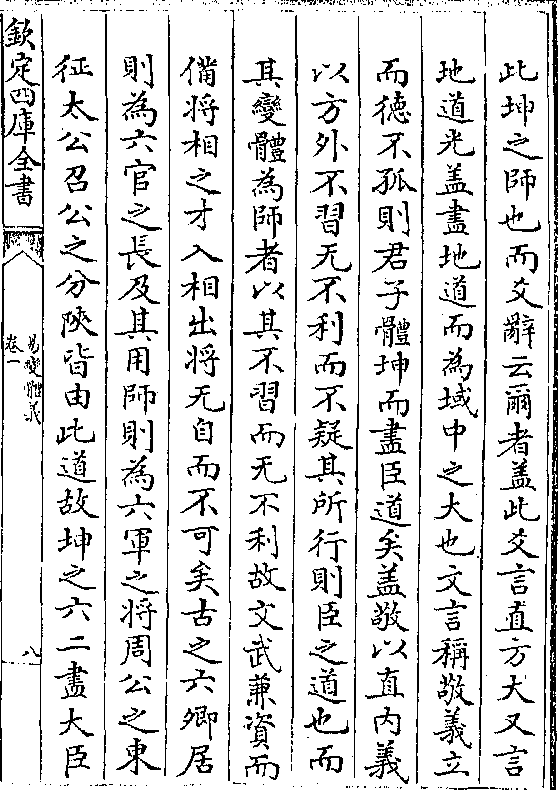 此坤之師也而爻辭云爾者蓋此爻言直方大又言
地道光蓋盡地道而為域中之大也文言稱敬義立
而德不孤則君子體坤而盡臣道矣蓋敬以直內義
以方外不習无不利而不疑其所行則臣之道也而
其變體為師者以其不習而无不利故文武兼資而
備將相之才入相出將无自而不可矣古之六卿居
則為六官之長及其用師則為六軍之將周公之東
征太公召公之分陝皆由此道故坤之六二盡大臣
欽定四庫全書
易變體義
卷一
八